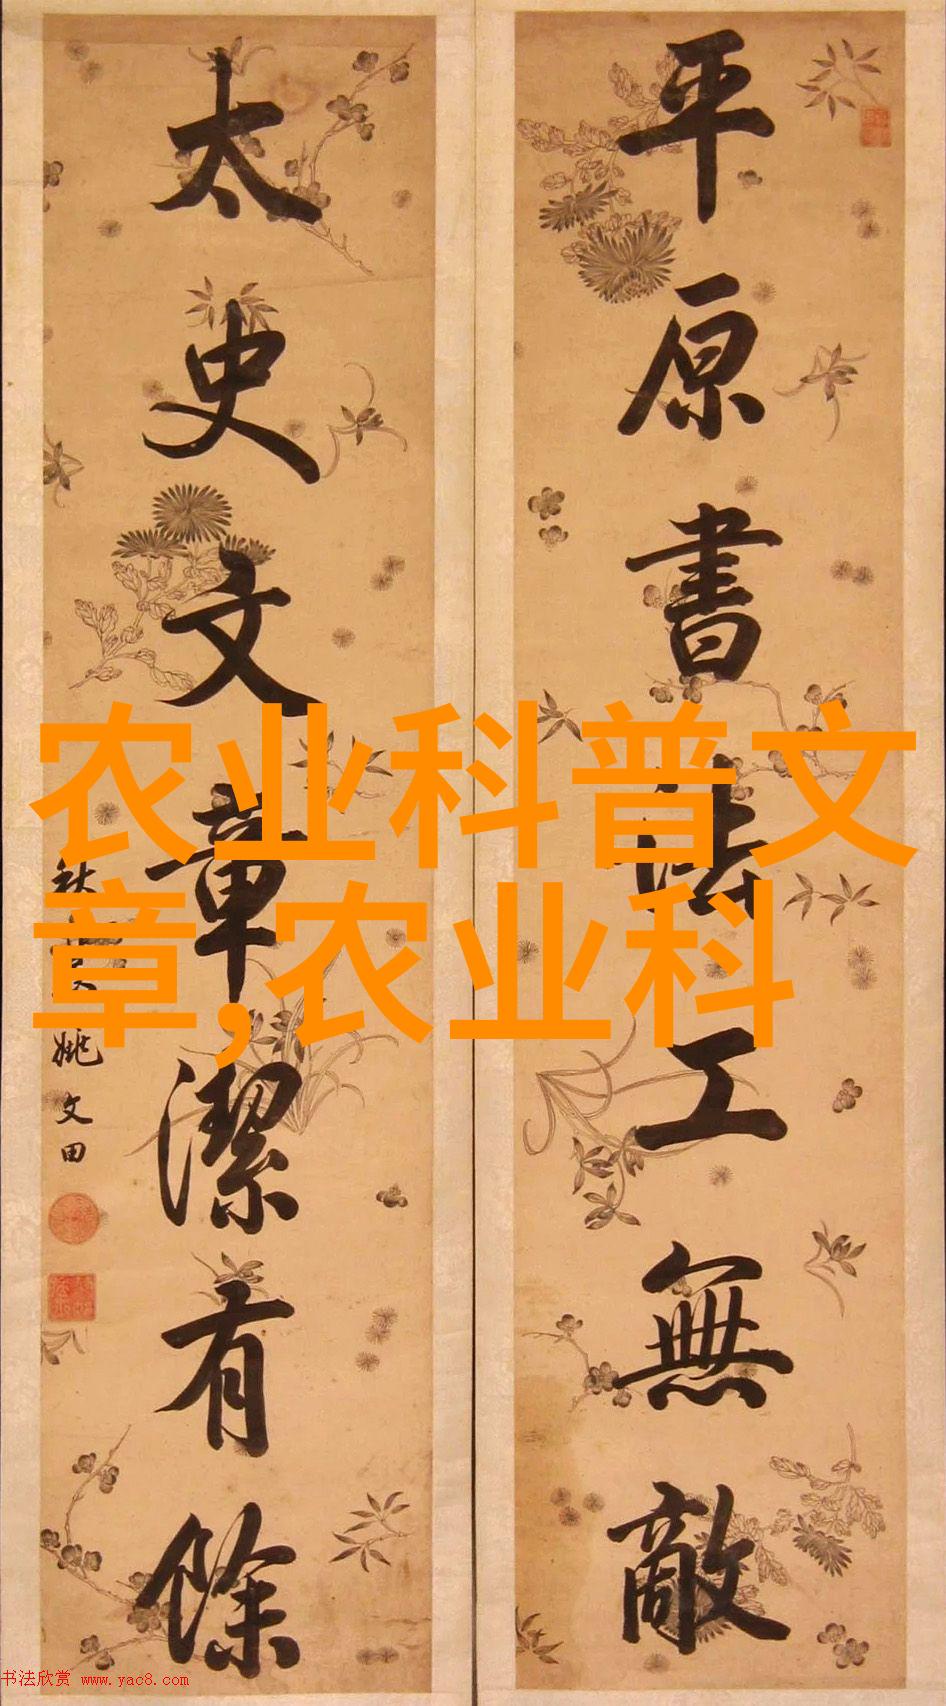 平原書法工無敵
太史文章潔有餘
姚文田
农业科普文
章,农业科
书法欣赏 www.yac8.com